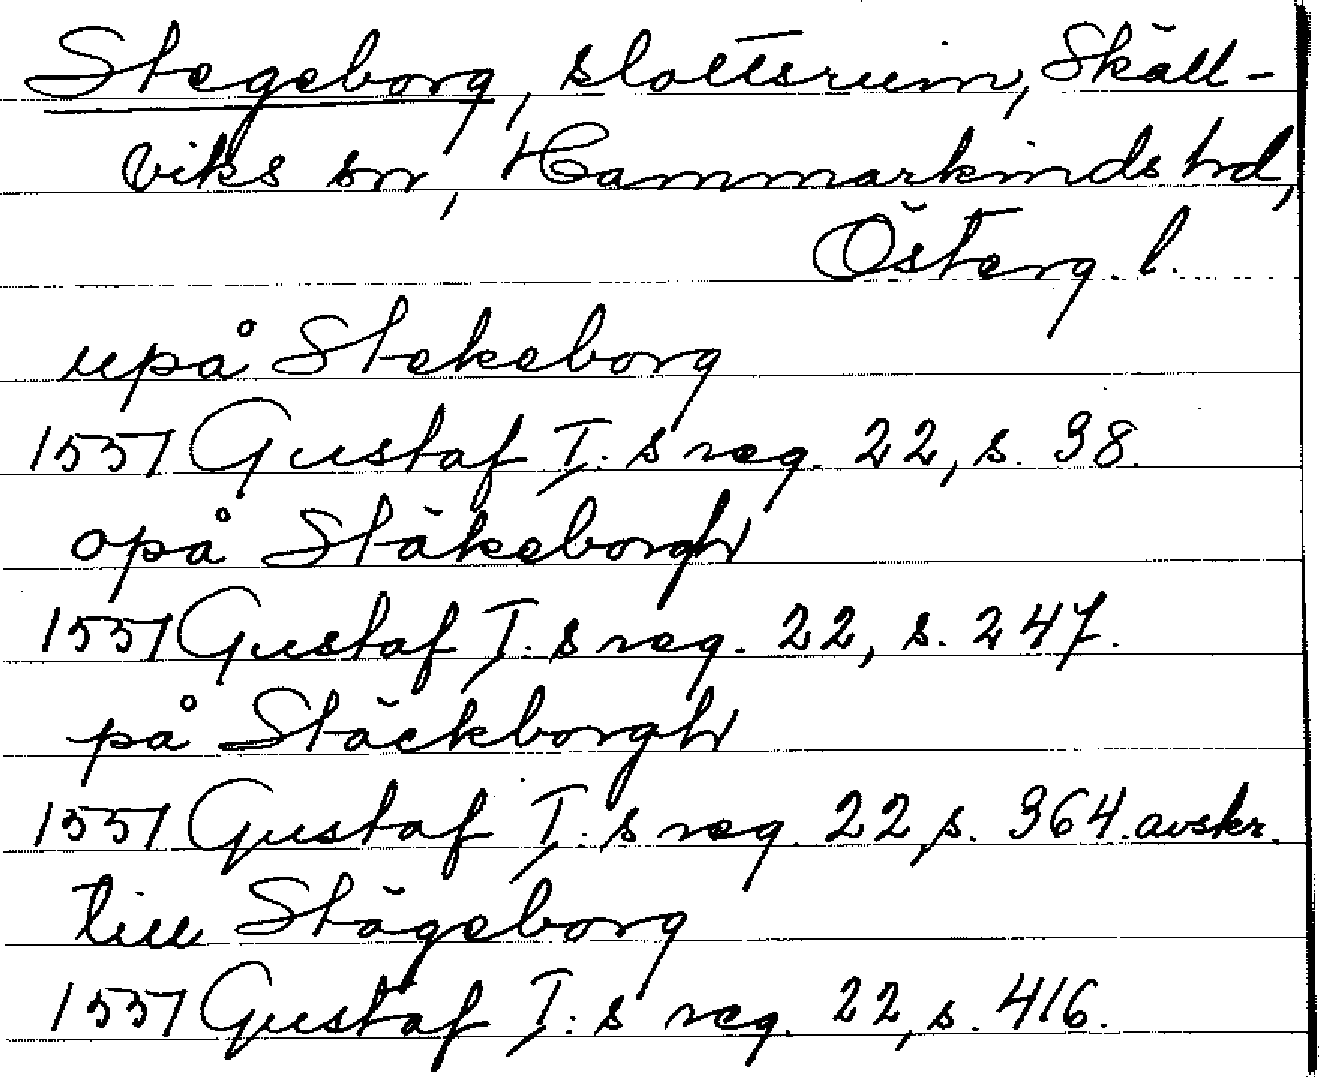 Stegeborg, slottsruin, Skäll-
viks sn, Hammarkinds hd,
Österg. l.
upå Stekeborg
1551 Gustaf I:s reg. 22, s. 38.
opå Stäkeborgh
1551 Gustaf I:s reg. 22, s. 247.
på Stäckborgh
1551 Gustaf I:s reg. 22, s. 364. avskr.
till Stägeborg
1551 Gustaf I:s reg. 22, s. 416.